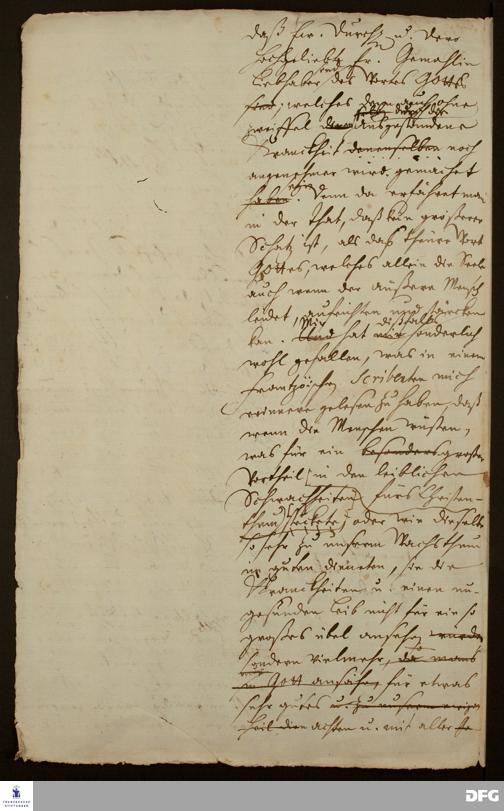 daß Ew. Durchl. u. Dero
hochgeliebte Fr. Gemahlin
Liebhaber des Wortes Gottes
sind, welches ohne
zweiffel durch die
denen ausgestandene
Kranckheit denenselben noch
angenehmer wird gemachet
seyn
haben. Denn da erfähret man
in der That, daß kein größerer
Schatz ist, als das theure Wort
Gottes, welches allein die Seele
auch wenn der äußere Mensch
leidet, aufrichten und stärcken
kan. Mir dißfalls
Und hat mir sonderlich
wohl gefallen, was in einem
frantzöischen Scribenten mich
erinnere gelesen zu haben, daß
wenn die Menschen wüsten,
was für ein besonders großer
Vortheil in den leiblichen
Schwachheiten fürs Christen-
thum steckete, oder wie dieselbe
so sehr zu unserm Wachsthum
im guten dieneten, sie die
Kranckheiten u. einen un-
gesunden Leib nicht für ein so
großes übel ansehen würden
sondern vielmehr, da mans
in Gott ansähe, für etwas
sehr gutes u. zu unserm
achten u. mit aller